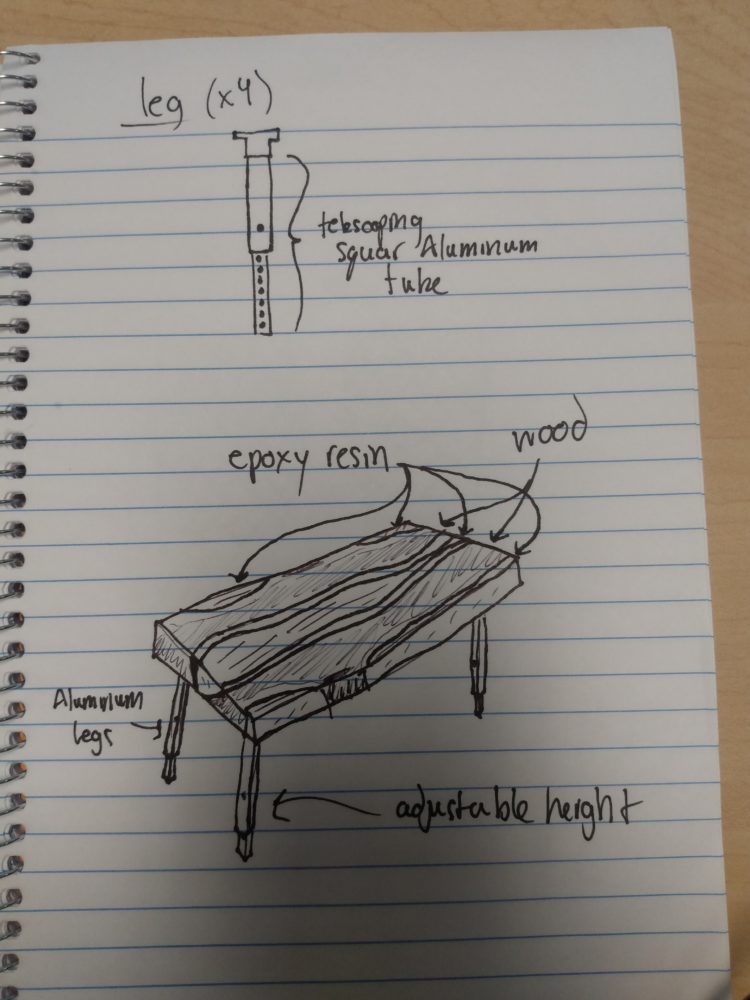 leg (x4)
telescoping
squar Aluminum
tube
epoxy resin
wood
Aluminum
legs
adjustable height